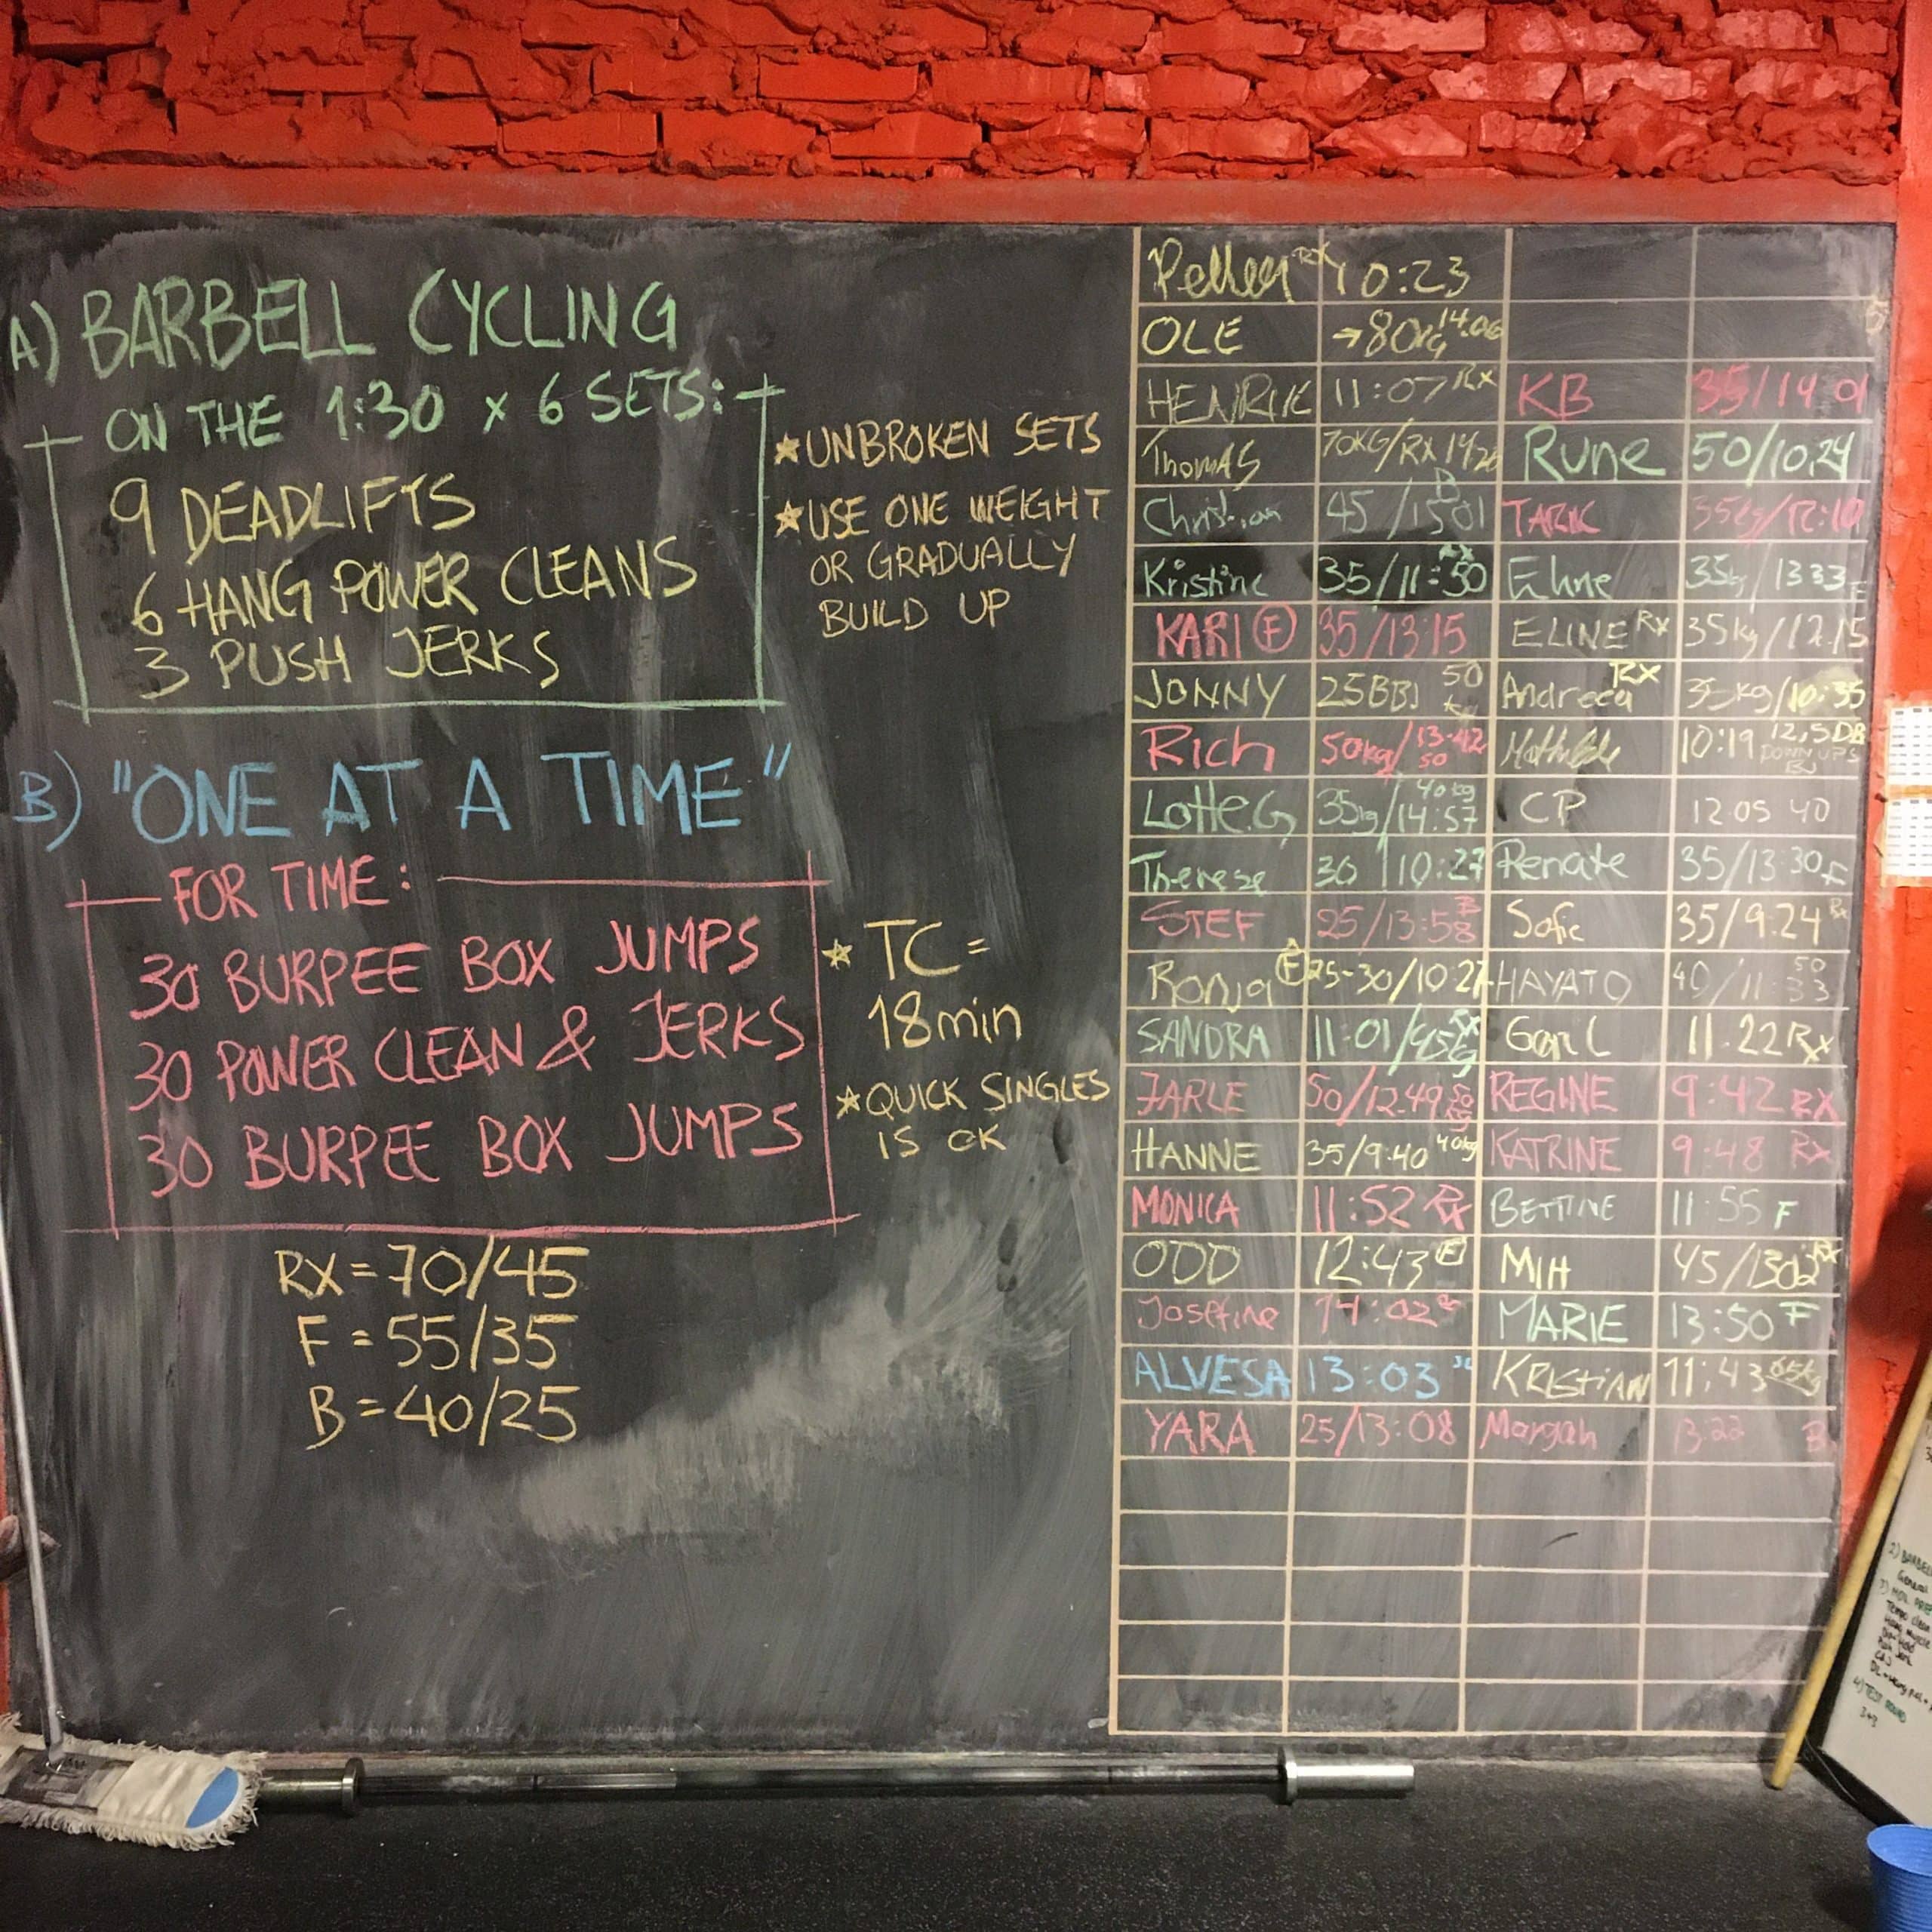 A) BARBELL CYCLING
ON THE 1:30 x 6 SETS:
9 DEADLIFTS
6 HANG POWER CLEANS
3 PUSH JERKS
★ UNBROKEN SETS
★ USE ONE WEIGHT
OR GRADUALLY
BUILD UP
B) "ONE AT A TIME"
FOR TIME:
30 BURPEE BOX JUMPS
30 POWER CLEAN & JERKS
30 BURPEE BOX JUMPS
★ TC =
18min
★ QUICK SINGLES
IS OK
RX = 70/45
F = 55/35
B = 40/25
RX 10:23
OLE → 80kg 14.06
HENRIK 11:07 RX KB 35/14 01
THOMAS 70KG/RX Rune 50/10.24
Christian 45 /1501 B TARIK 35kg/12:10
Kristine 35/11:50 RX Eline 35kg/1333 F
KARI F 35/13:15 ELINE RX 35kg/12.15
JONNY 25BBJ 50 kg Andreea RX 35kg/10:35
Rich 50kg/13:42 50 Mathilde 10:19 12,5DB DOWN UPS
Lotte.G 35kg/14:57 40kg CP 12.05 40
Therese 30 /10:27 Renate 35/13:30 F
STEF 25/13:58 B Sofie 35/9:24 Rx
Ronja F 25-30/10:27 HAYATO 40/11:33 50
SANDRA 11:01/45kg RX 11.22 Rx
JARLE 50/12.49 REGINE 9:42 RX
HANNE 35/9:40 40kg KATRINE 9:48 RX
MONICA 11:52 Rx BETTINE 11:55 F
ODD 12:43 F MIH 45/1302 RX
Josefine 14:02 B MARIE 13:50 F
ALVESA 13:03 KRISTIAN 11:43
YARA 25/13:08 Morgan 13:22 B
2) BARBELL
General
Tempo clean
4) TEST ROUND
3+3